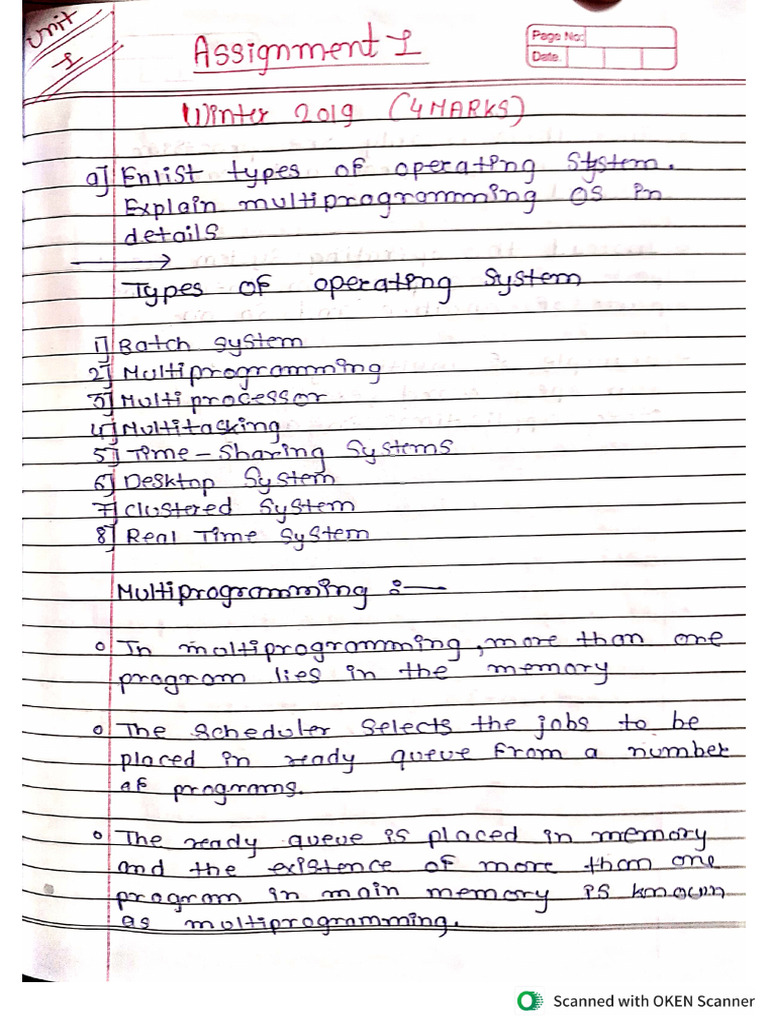 Unit
1
Assignment 1
Page No:
Date.
(1) Winter 2019 (4 MARKS)
a] Enlist types of operating System.
Explain multiprogramming OS in
details
Types of operating System
1] Batch system
2] Multiprogramming
3] Multiprocessor
4] Multitasking
5] Time-Sharing Systems
6] Desktop System
7] Clustered System
8] Real Time System
Multiprogramming :—
o In multiprogramming, more than one
program lies in the memory
o The scheduler selects the jobs to be
placed in ready queue from a number
of programs.
o The ready queue is placed in memory
and the existence of more than one
program in main memory is known
as multiprogramming.
Scanned with OKEN Scanner